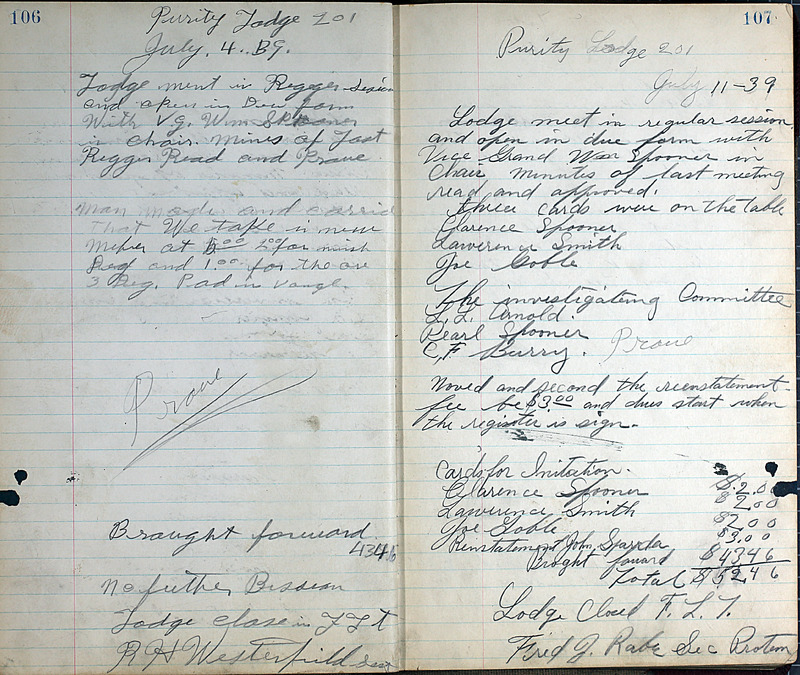 106
Purity Lodge 201
July. 4. 39.
Lodge ment in Regger Session
and open in Due form
With V.G. Wm Spooner
in chair. mines of Last
Regger Read and Prove
man made and carrid
That We take in new
at
Reg and 1.00 for the
3 Reg. Pad in
Prove
Braught forward.
4346
No futher Bissean
Lodge close in F L T
R H Westerfield Sect
107
Purity Lodge 201
July 11-39
Lodge meet in regular session,
and open in due form with
Vice Grand Wm Spooner in
Chair minutes of last meeting
read and approved.
three cards were on the table
Clarence Spooner
Lawerence Smith
Joe Goble
The investigating Committee
L. L. Arnold.
Pearl Spooner
C, F Burry. Prove
Moved and second the reenstatement
fee be $3.00 and dues start when
the register is sign.
Cards for Initation.
Clarence Spooner $.2.00
Lawerence Smith $2.00
Joe Goble $2.00
Reinstatement John $3.00
Broght foward $4346
Total $5246
Lodge Closed F. L. T.
Fred J. Rabe Sec Protem